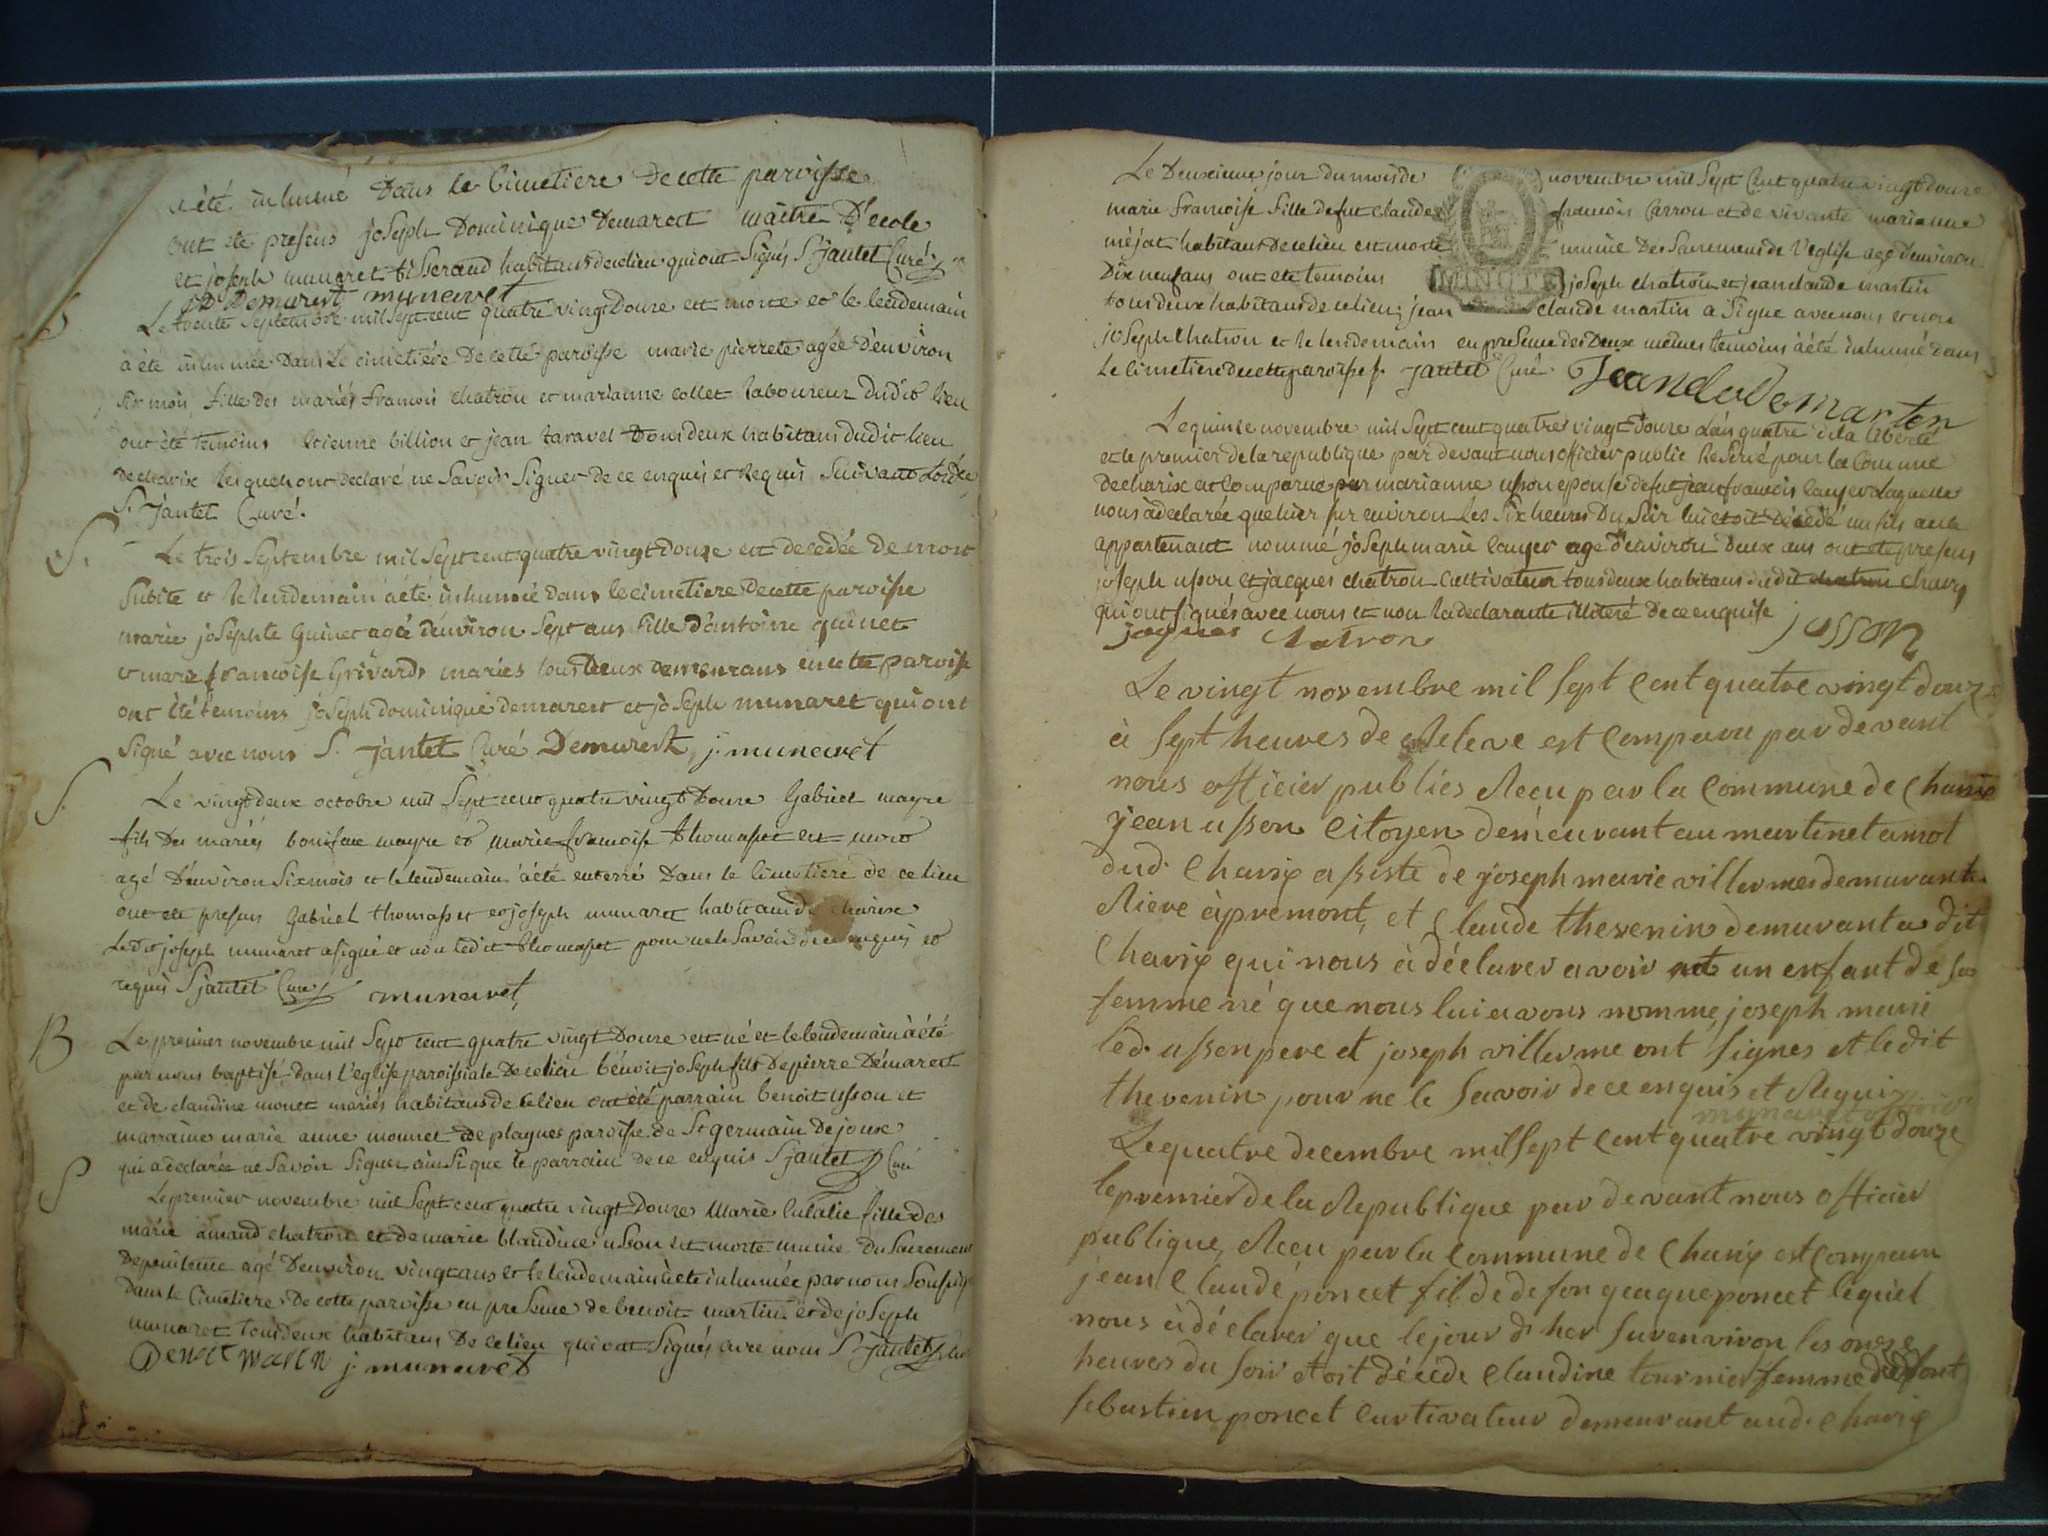 a été inhumé Dans le Cimetiere De cette paroisse
ont été presens joseph Dominique Demarest maitre D'ecole
et joseph munaret tisserand habitans de ce lieu qui ont Signés S. Jantet Curé
Demarest munaret
Le trente Septembre mil sept cent quatre vingt Douze est morte et le lendemain
à été inhumée Dans Le cimetière De cette paroisse marie pierrete agée D'environ
Six mois fille Des mariés francois chatron et marianne collet laboureur Dudit lieu
ont été temoins Etienne billion et jean taravel Tous deux habitans dudit lieu
De charix lesquels ont Declaré ne Savoir Signer de ce enquis et Requis Suivant L'ordce
S. Jantet Curé.
S.
Le trois Septembre mil Sept cent quatre vingt douze est decedée De mort
Subite et le lendemain à été inhumée dans le cimetiere De cette paroisse
marie josephte Guinet agée d'environ Sept ans fille d'antoine guinet
et marie francoise Grivard mariés tous deux demeurans en cette paroisse
ont été temoins joseph dominique demarest et joseph munaret qui ont
Signé avec nous S. Jantet Curé Demarest j. munaret
S.
Le vingt deux octobre mil Sept cent quatre vingt Douze Gabriel mayre
fils Des mariés boniface mayre et marie francoise thomasset est mort
agé D'environ Six mois et le lendemain à été enterré Dans le cimetiere de ce lieu
ont été presens Gabriel thomasset et joseph munaret habitans de charixe
Ledit joseph munaret a signé et non ledit thomasset pour ne le Savoir de ce enquis et
requis S Jantet Curé munaret
B
Le premier novembre mil Sept cent quatre vingt Douze est né et le lendemain à été
par nous baptisé dans l'eglise paroissiale De ce lieu bénoit joseph fils De pierre Démarest
et de claudine monet mariés habitans de ce lieu ont été parrain benoit usson et
marraine marie anne mounet de plagnes paroisse de St germain De joux
qui a declarée ne Savoir Signer ainsi que le parrain de ce enquis S Jantet Curé
S
Le premier novembre mil Sept cent quatre vingt Douze Marie Eulalie fille des
marie amand chatron et de marie blandine usson est morte munie Du Sacrement
De penitence agé D'environ vingt ans et le lendemain à été inhumée par nous Soussig
Dans le Cimetiere De cette paroisse en presence de benoit martin et de joseph
munaret tous deux habitans De ce lieu qui ont Signés avec nous S Jantet
Benoit martin j. munaret
Le Deuxieme jour du mois de novembre mil Sept Cent quatre vingt douze
marie francoise fille de fut claude francois Carron et de vivante marianne
méjat habitans De ce lieu est morte munie Des Sacremens de l'eglise agé d'environ
Dix neuf ans ont été temoins joseph chatron et jean claude martin
MINUTE
tous deux habitans de ce lieu; jean claude martin a Signé avec nous et non
joseph Chatron et le lendemain en presence des Deux mêmes temoins à été inhumé dans
Le cimetiere de cette paroisse Jantet Curé Jean clode marten
Le quinse novembre mil Sept cent quatre vingt Douze L'an quatre de la liberté
et le premier de la republique par devant nous officier public Reservé pour la Comune
De charix est comparue marianne usson epouse de fut jean francois lanyer Laquelle
nous à declarée que hier sur environ Les Six heures Du Soir lui etoit décédé un fils a elle
appartenant nommé joseph marie lanyer agé d'environ deux ans ont été presens
joseph usson et jacques chatron Cultivateur tous deux habitans du dit charix
qui ont signés avec nous et non la declarante illiteré De ce enquise
jaques chatron jusson
Le vingt novembre mil sept Cent quatre vingt douze
à sept heures de Releve est Comparu par devant
nous officier publics Reçu par la Commune de Charix
jean usson Citoyen demeurant au martinet amot
dud. Charix assisté de joseph marie villermes demeurant
Riere àpremont, et Claude thevenin demurant a dit
Charix qui nous à déclarer avoir un enfant de sa
femme né que nous lui avons nommé joseph marie
led. usson pere et joseph villerme ont signes et ledit
thevenin pour ne le Savoir de ce enquis et Requis
munaret officier
Le quatre decembre mil sept Cent quatre vingt douze
le premier de la Republique par devant nous officier
publique, Recu par la Commune de Charix est Comparu
jean Claudé poncet fils de defon jeaque poncet lequel
nous à déclarer que le jour d'hier sur environ les onze
heures du soir etoit décédé Claudine tournier femme defont
sebastien poncet Curtivateur demeurant aud. Charix